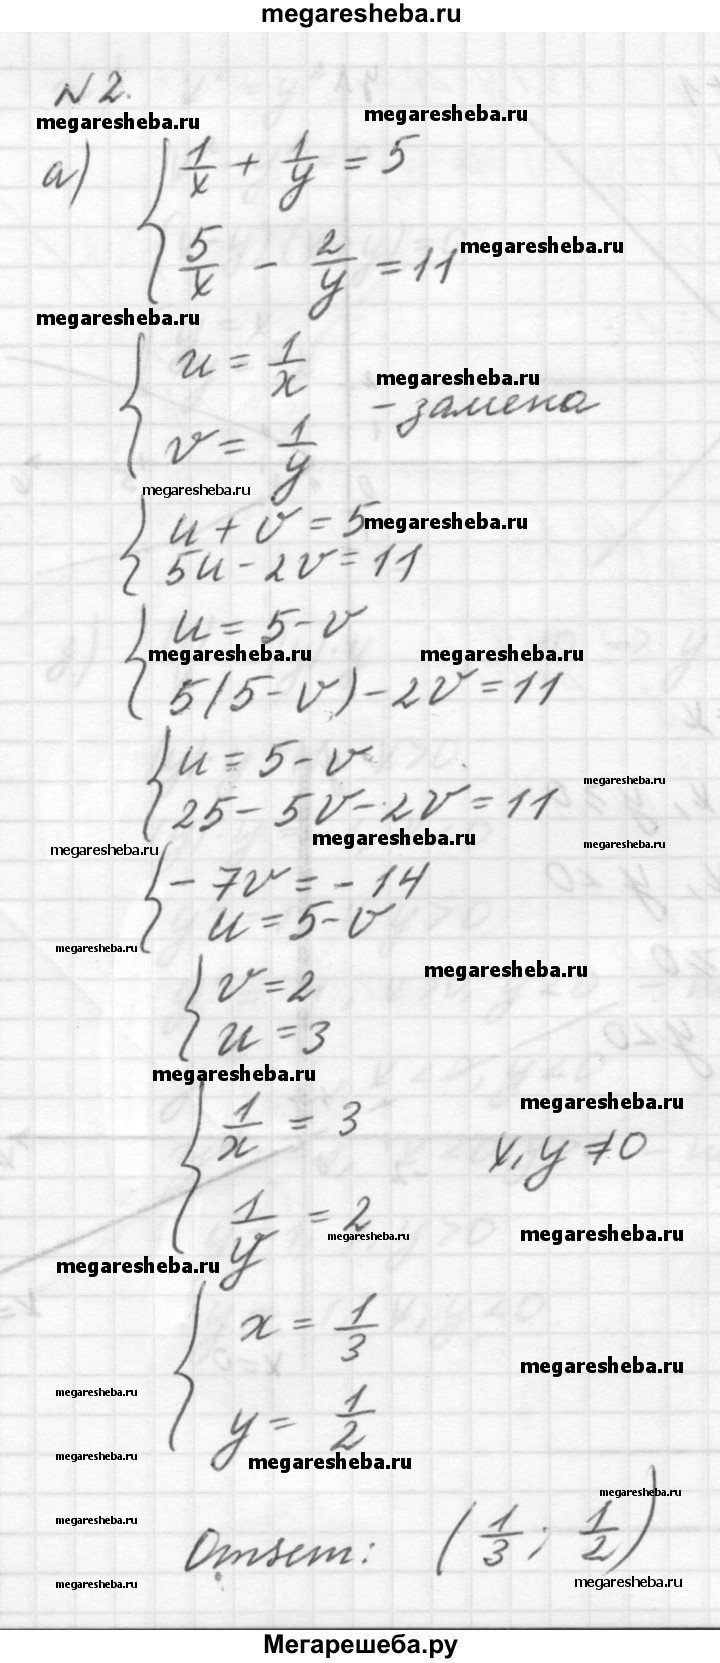 megaresheba.ru
№2.
megaresheba.ru
megaresheba.ru
а) { 1/x + 1/y = 5
5/x - 2/y = 11
megaresheba.ru
megaresheba.ru
{ u = 1/x
megaresheba.ru
- замена
v = 1/y
megaresheba.ru
{ u + v = 5
megaresheba.ru
5u - 2v = 11
{ u = 5 - v
megaresheba.ru
megaresheba.ru
5(5 - v) - 2v = 11
{ u = 5 - v
megaresheba.ru
25 - 5v - 2v = 11
megaresheba.ru
megaresheba.ru
megaresheba.ru
{ - 7v = - 14
u = 5 - v
megaresheba.ru
megaresheba.ru
{ v = 2
u = 3
megaresheba.ru
megaresheba.ru
{ 1/x = 3
x, y ≠ 0
1/y = 2
megaresheba.ru
megaresheba.ru
megaresheba.ru
{ x = 1/3
megaresheba.ru
megaresheba.ru
y = 1/2
megaresheba.ru
megaresheba.ru
megaresheba.ru
megaresheba.ru
Ответ: (1/3; 1/2)
megaresheba.ru
megaresheba.ru
Мегарешеба.ру